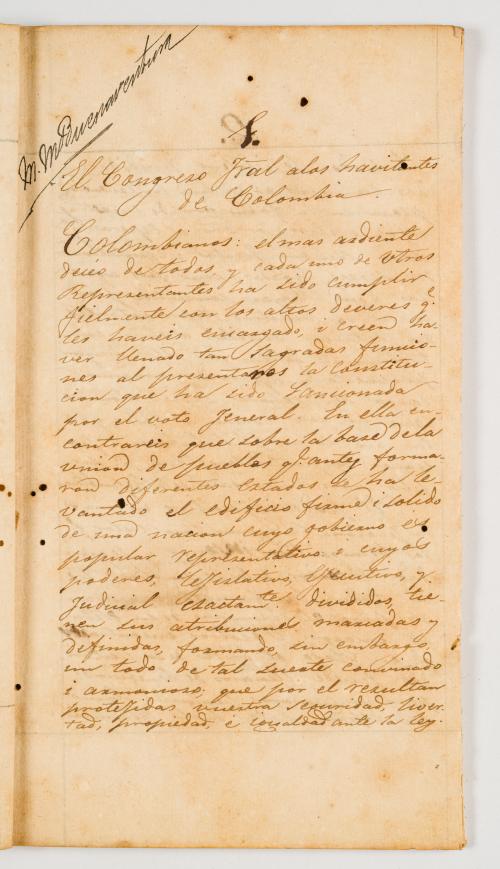 M. M. Buenaventura
El Congreso Jral alos havitantes
de Colombia.
Colombianos: elmas ardiente
deseo de todos, y cada uno de Vtros
Representantes ha sido cumplir
fielmente con los altos deveres q.e
les haveis encargado, i creen ha-
ver llenado tan sagradas funcio-
nes al presentaros la Constitu-
cion que ha sido sancionada
por el voto Jeneral. En ella en-
contrareis que sobre la base dela
union de pueblos q.e antes forma-
ron diferentes estados se ha le-
vantado el edificio firme i solido
de una nacion cuyo gobierno es
popular representativo i cuyos
poderes, Lejislativo, Ejecutivo, y
Judicial exactam.te divididos, tie-
nen sus atribuciones marcadas y
difinidas, formando, sin embargo,
un todo de tal suerte convinado
i armonioso, que por el resultan
protejidas vuestra seguridad, liver-
tad, propiedad, è igualdad ante la ley.